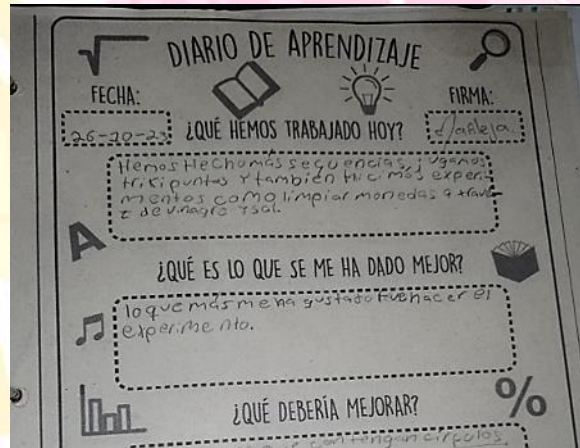 DIARIO DE APRENDIZAJE
FECHA:
FIRMA:
26-10-23
¿QUÉ HEMOS TRABAJADO HOY?
Hemos Hecho más secuencias, jugamos
tritipuntos Y también Hicimos experi
mentos como limpiar monedas a trave
z de vinagre Y sal.
A
¿QUÉ ES LO QUE SE ME HA DADO MEJOR?
lo que más me ha gustado Fue hacer el
experimento.
¿QUÉ DEBERÍA MEJORAR?
%
que contengan círculos